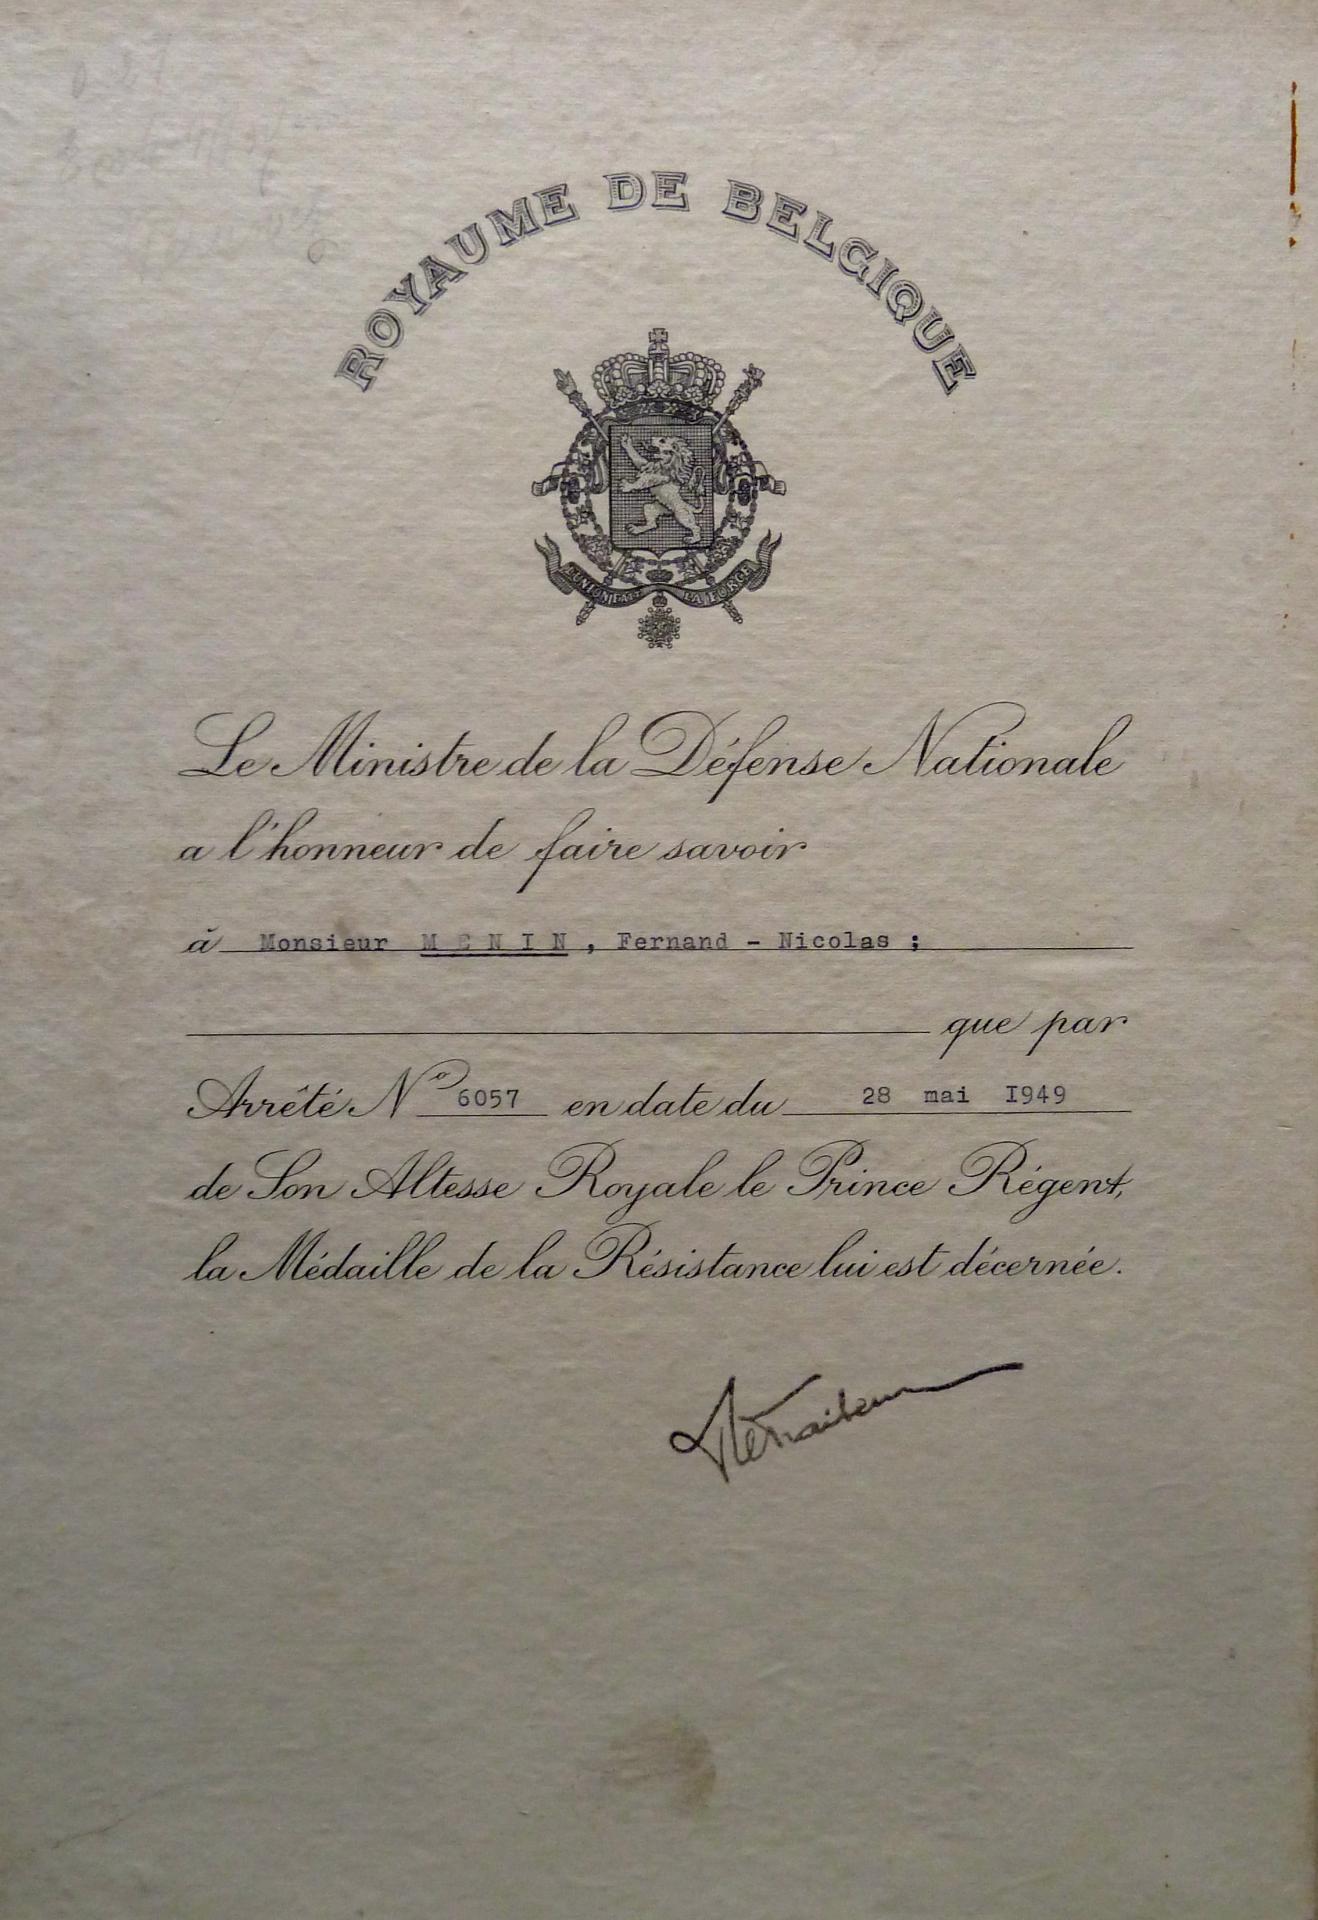 ROYAUME DE BELGIQUE
L'UNION FAIT LA FORCE
Le Ministre de la Défense Nationale
a l'honneur de faire savoir
à Monsieur MENIN, Fernand - Nicolas ;
que par
Arrêté No 6057 en date du 28 mai I949
de Son Altesse Royale le Prince Régent,
la Médaille de la Résistance lui est décernée.